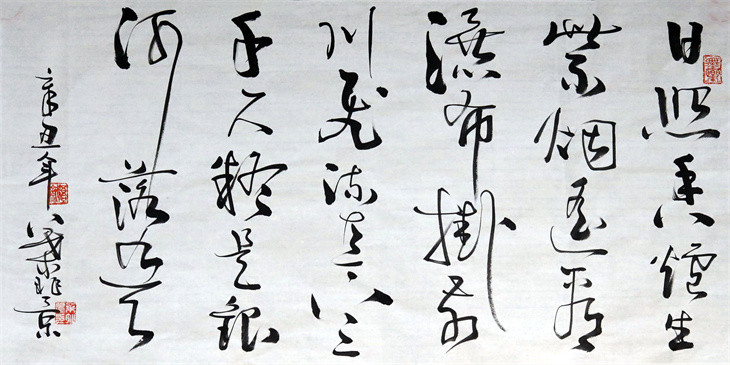 日照香爐生
紫烟遥看
瀑布掛前
川飛流直下三
千尺疑是銀
河落九天
辛丑年